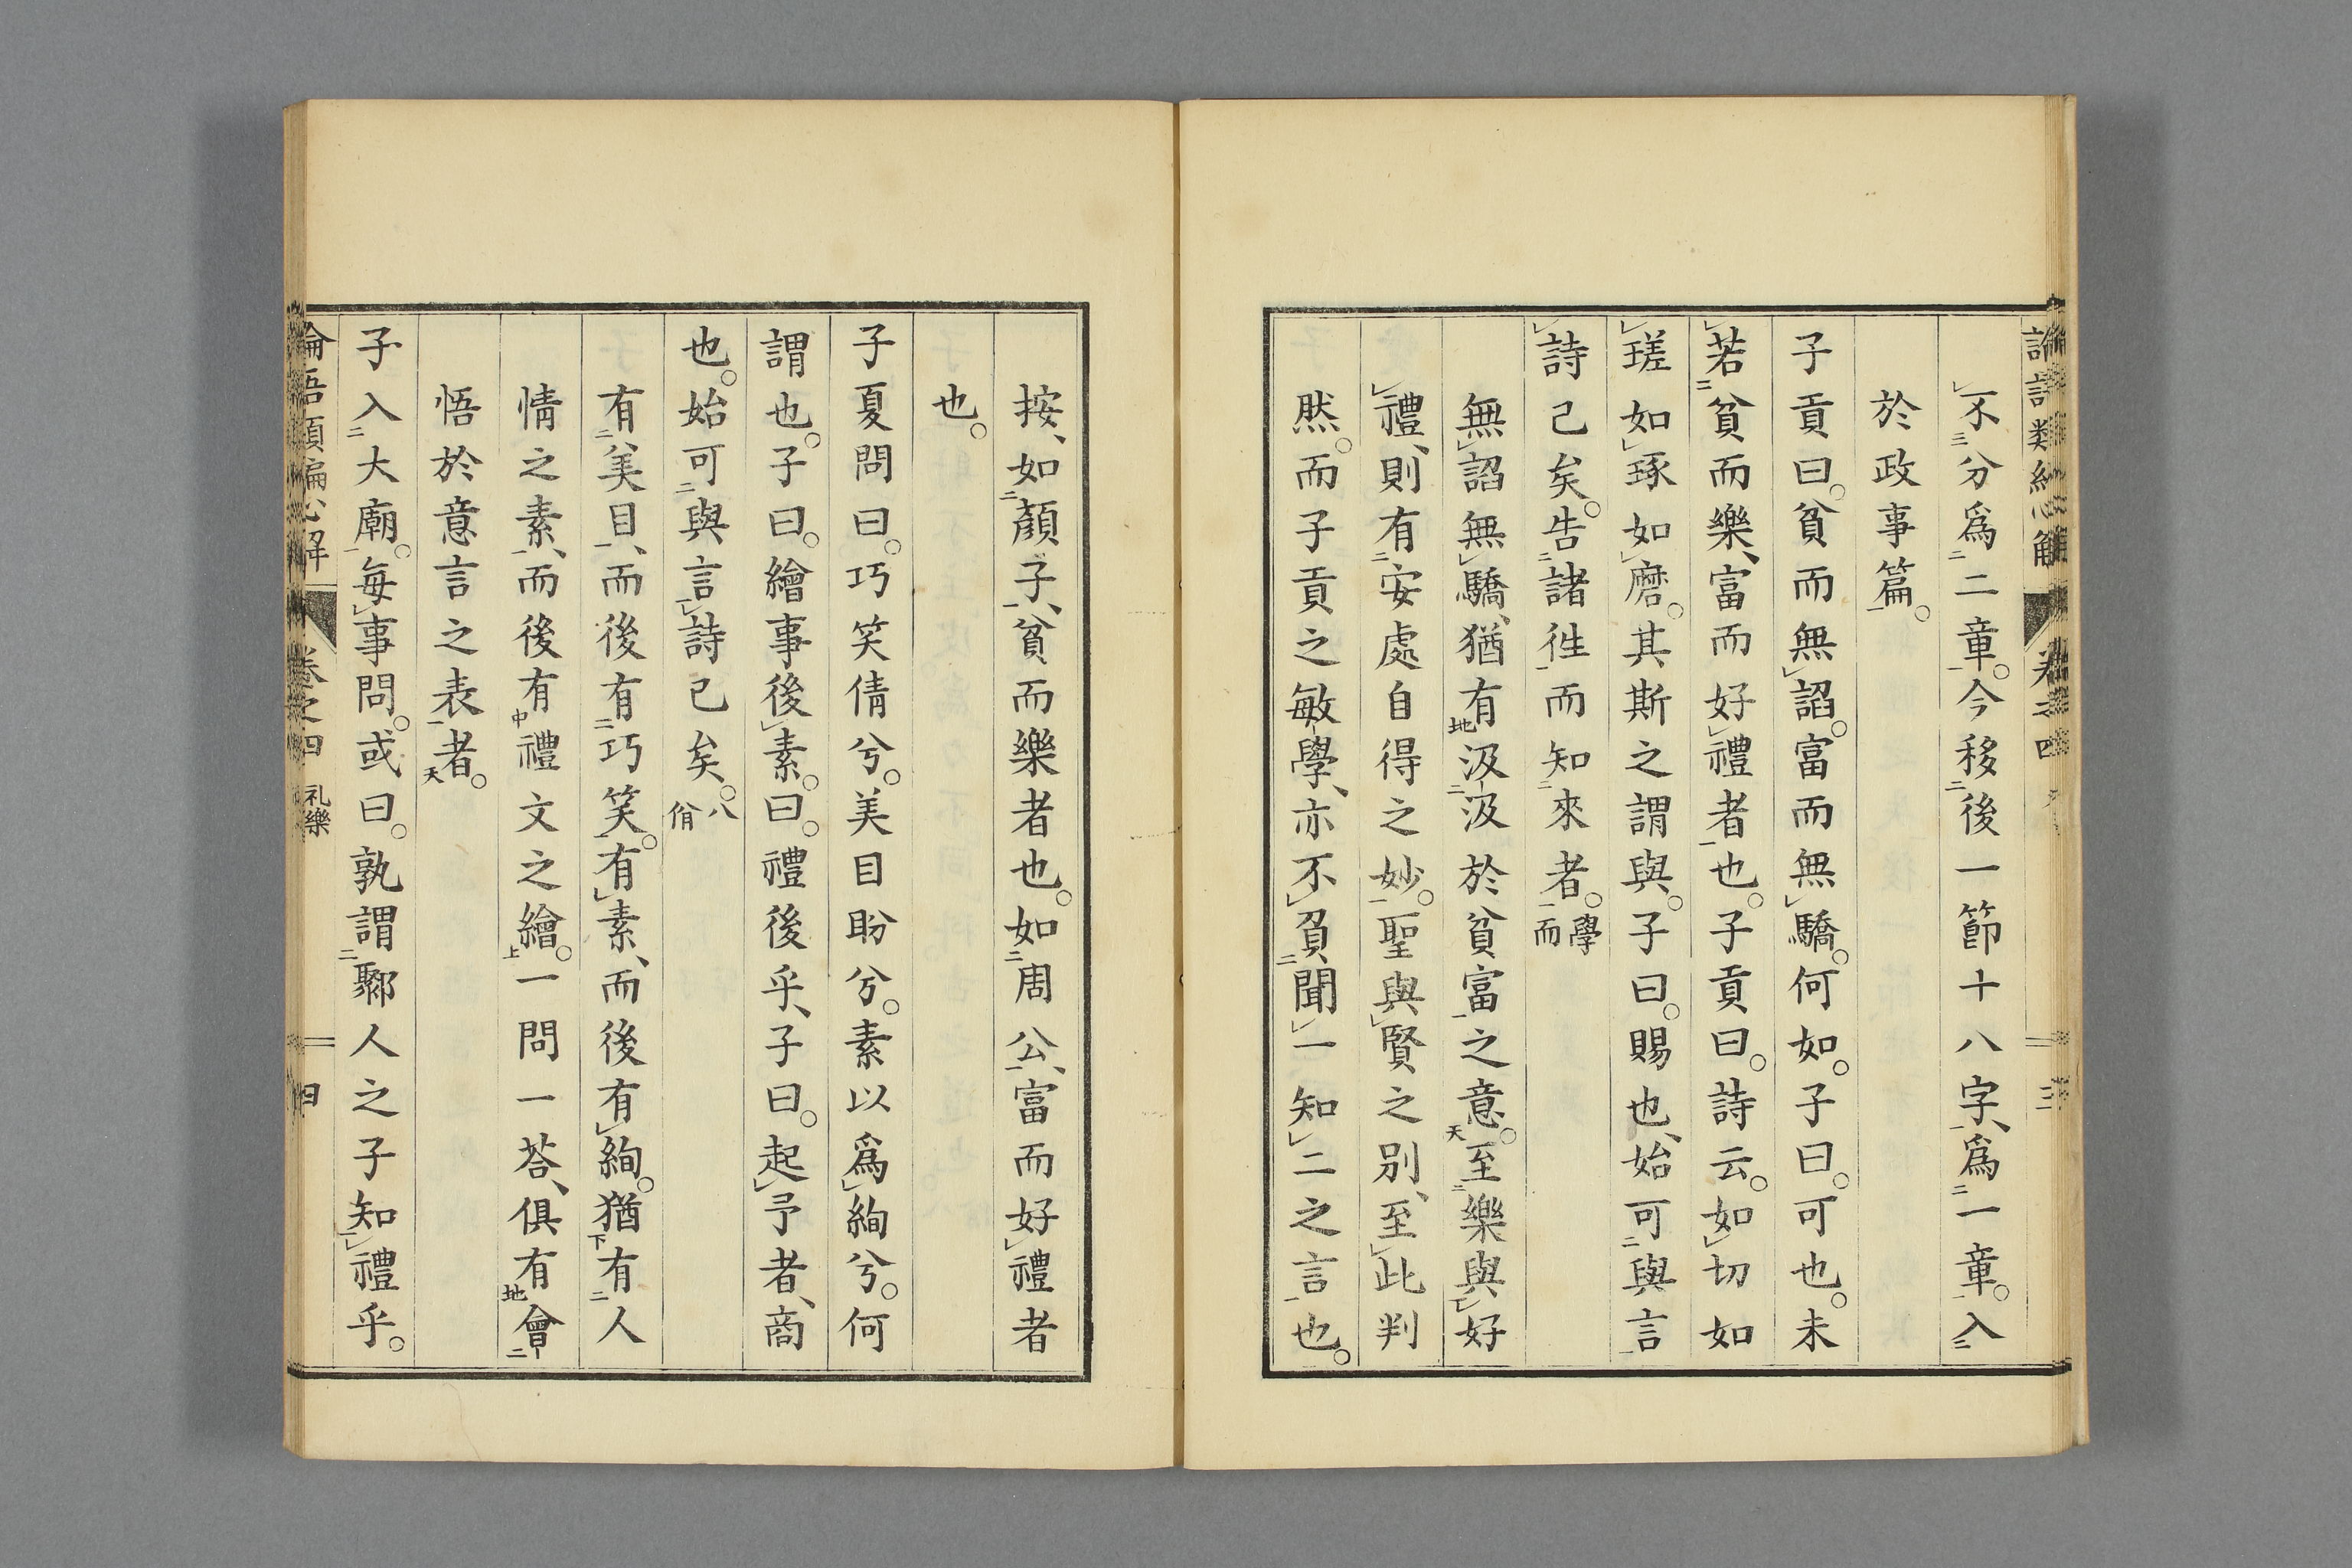 不分爲二章。今移後一節十八字、爲一章。入
於政事篇。
子貢曰。貧而無諂。富而無驕。何如。子曰。可也。未
若貧而樂、富而好禮者也。子貢曰。詩云。如切如
瑳如琢如磨。其斯之謂與。子曰。賜也、始可與言
詩已矣。告諸徃而知來者。學而
無諂無驕、猶有汲汲於貧富之意。至樂與好
禮、則有安處自得之妙。聖與賢之別、至此判
然。而子貢之敏學、亦不負聞一知二之言也。
按、如顏子、貧而樂者也。如周公、富而好禮者
也。
子夏問曰。巧笑倩兮。美目盼兮。素以爲絢兮。何
謂也。子曰。繪事後素。曰。禮後乎、子曰。起予者、商
也。始可與言詩已矣。八佾
有美目、而後有巧笑。有素、而後有絢。猶有人
情之素、而後有禮文之繪。一問一荅、俱有會
悟於意言之表者。
子入大廟。每事問。或曰。孰謂鄹人之子知禮乎。
卷之四 礼樂 四